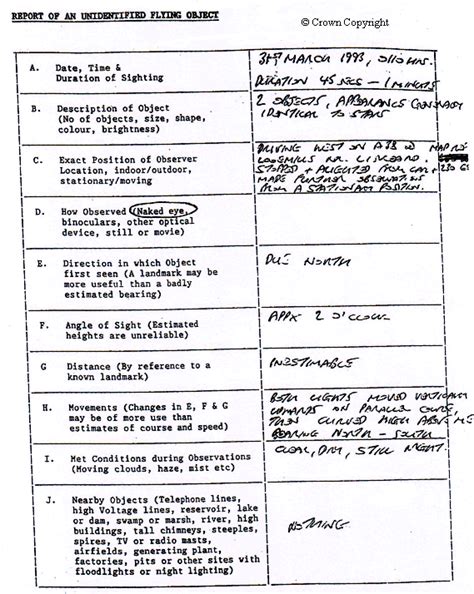 REPORT OF AN UNIDENTIFIED FLYING OBJECT
© Crown Copyright
A. Date, Time &
Duration of Sighting
31ST MARCH 1993, 0110 HRS.
DURATION 45 SECS – 1 MINUTE
B. Description of Object
(No of objects, size, shape,
colour, brightness)
2 OBJECTS, APPEARANCE GENERALLY
IDENTICAL TO STARS
C. Exact Position of Observer
Location, indoor/outdoor,
stationary/moving
DRIVING WEST ON MAP RE
NR. LISKEARD.
STOPPED + ALIGHTED FROM CAR +
MADE FURTHER OBSERVATIONS
FROM A STATIONARY POSITION.
D. How Observed (Naked eye,
binoculars, other optical
device, still or movie)
E. Direction in which Object
first seen (A landmark may be
more useful than a badly
estimated bearing)
DUE NORTH
F. Angle of Sight (Estimated
heights are unreliable)
APPX 2 O'CLOCK
G Distance (By reference to a
known landmark)
INESTIMABLE
H. Movements (Changes in E, F & G
may be of more use than
estimates of course and speed)
BOTH LIGHTS MOVED VERTICALLY
UPWARDS ON PARALLEL COURSE,
THEN CURVED HIGH ABOVE ME
BEARING NORTH – SOUTH
I. Met Conditions during Observations
(Moving clouds, haze, mist etc)
CLEAR, DRY, STILL NIGHT.
J. Nearby Objects (Telephone lines,
high Voltage lines, reservoir, lake
or dam, swamp or marsh, river, high
buildings, tall chimneys, steeples,
spires, TV or radio masts,
airfields, generating plant,
factories, pits or other sites with
floodlights or night lighting)
NOTHING